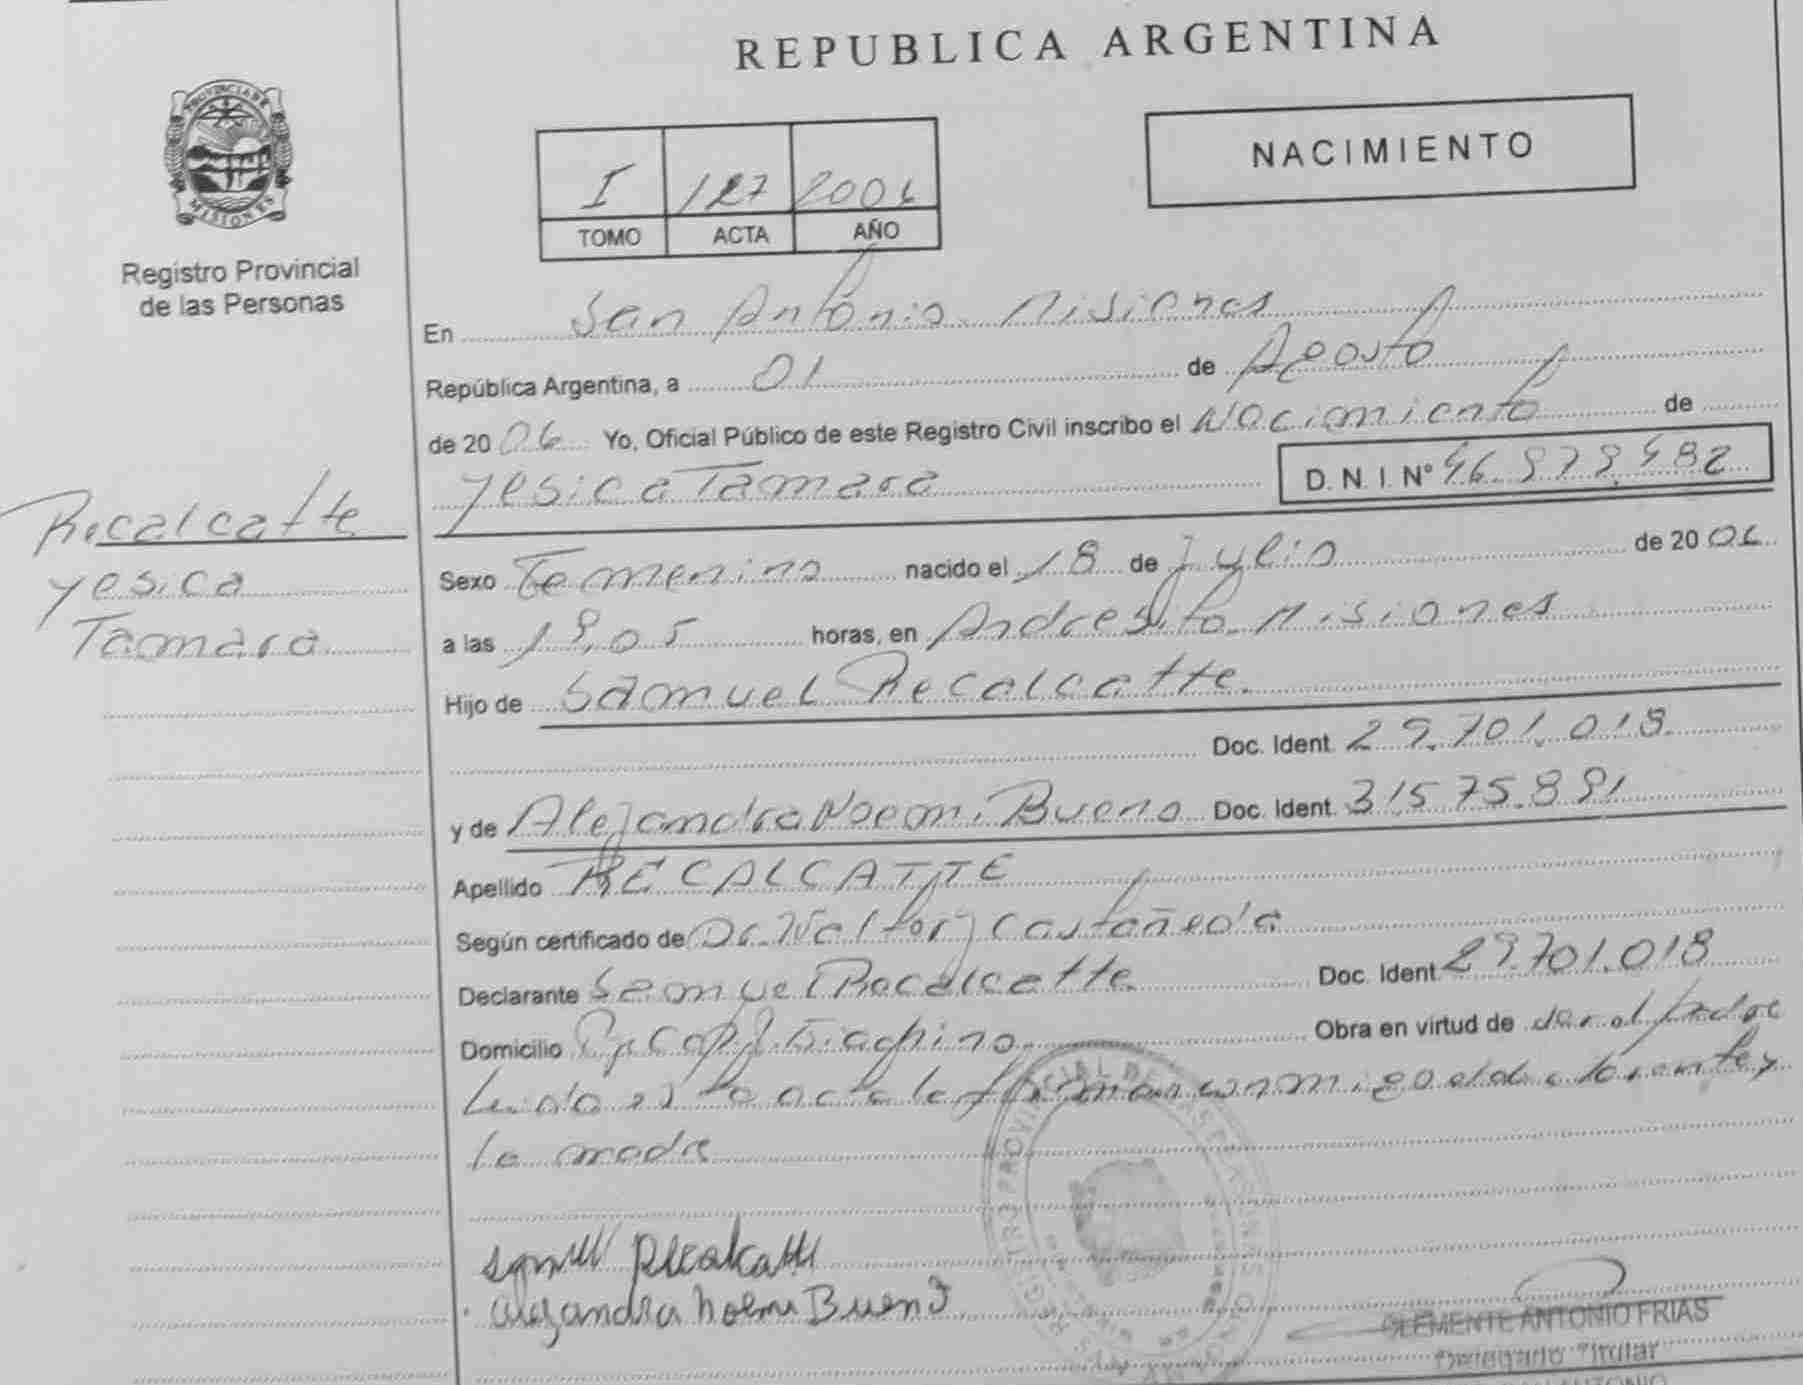 REPUBLICA ARGENTINA
PROVINCIA DE
MISIONES
Registro Provincial
de las Personas
NACIMIENTO
I 127 2006
TOMO ACTA AÑO
En San Antonio Misiones
República Argentina, a 01 de Agosto
de 2006 Yo, Oficial Público de este Registro Civil inscribo el Nacimiento de
Yesica Tamara D. N. I. Nº 46.979.482
Recalcatte
Yesica
Tamara
Sexo Femenino nacido el 18 de Julio de 2006
a las 19,05 horas, en Andresito Misiones
Hijo de Samuel Recalcatte.
Doc. Ident. 29.701.018.
y de Alejandra Noemi Bueno Doc. Ident. 31575.891
Apellido RECALCATTE
Según certificado de Dr. Walter J Castañeda
Declarante Samuel Recalcatte Doc. Ident. 29.701.018
Domicilio Obra en virtud de ser el padre
Leida esta acta la firman conmigo el declarante y
la madre
Samuel Recalcatte
Alejandra Noemi Bueno
CLEMENTE ANTONIO FRIAS
Delegado Titular